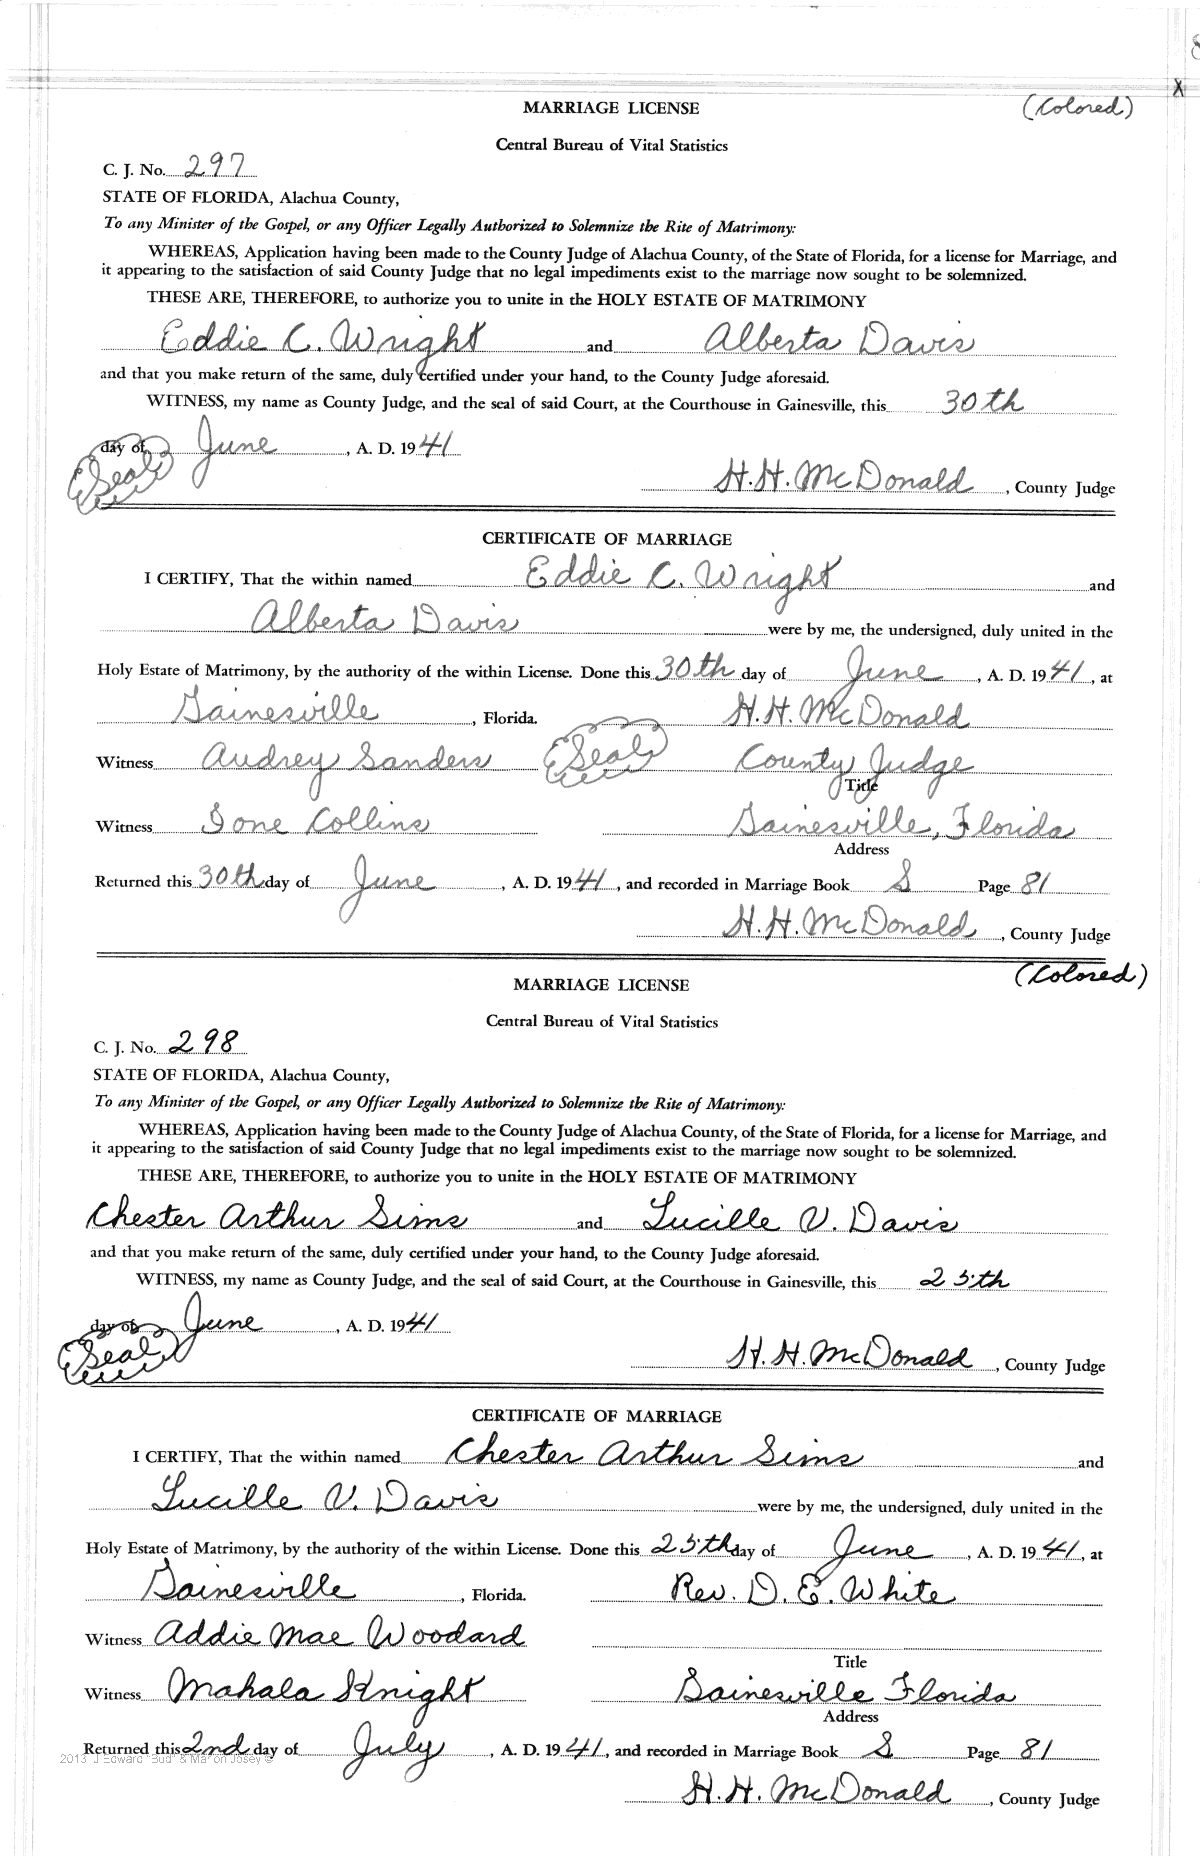 MARRIAGE LICENSE (Colored)
Central Bureau of Vital Statistics
C. J. No. 297
STATE OF FLORIDA, Alachua County,
To any Minister of the Gospel, or any Officer Legally Authorized to Solemnize the Rite of Matrimony:
WHEREAS, Application having been made to the County Judge of Alachua County, of the State of Florida, for a license for Marriage, and
it appearing to the satisfaction of said County Judge that no legal impediments exist to the marriage now sought to be solemnized.
THESE ARE, THEREFORE, to authorize you to unite in the HOLY ESTATE OF MATRIMONY
Eddie C. Wright and Alberta Davis
and that you make return of the same, duly certified under your hand, to the County Judge aforesaid.
WITNESS, my name as County Judge, and the seal of said Court, at the Courthouse in Gainesville, this 30th
day of June, A. D. 1941
(Seal) H. H. McDonald, County Judge
CERTIFICATE OF MARRIAGE
I CERTIFY, That the within named Eddie C. Wright and
Alberta Davis were by me, the undersigned, duly united in the
Holy Estate of Matrimony, by the authority of the within License. Done this 30th day of June, A. D. 1941, at
Gainesville, Florida. H. H. McDonald
Witness Audrey Sanders (Seal) County Judge
Title
Witness Ione Collins Gainesville, Florida
Address
Returned this 30th day of June, A. D. 1941, and recorded in Marriage Book S Page 81
H. H. McDonald, County Judge
MARRIAGE LICENSE (Colored)
Central Bureau of Vital Statistics
C. J. No. 298
STATE OF FLORIDA, Alachua County,
To any Minister of the Gospel, or any Officer Legally Authorized to Solemnize the Rite of Matrimony:
WHEREAS, Application having been made to the County Judge of Alachua County, of the State of Florida, for a license for Marriage, and
it appearing to the satisfaction of said County Judge that no legal impediments exist to the marriage now sought to be solemnized.
THESE ARE, THEREFORE, to authorize you to unite in the HOLY ESTATE OF MATRIMONY
Chester Arthur Sims and Lucille V. Davis
and that you make return of the same, duly certified under your hand, to the County Judge aforesaid.
WITNESS, my name as County Judge, and the seal of said Court, at the Courthouse in Gainesville, this 25th
day of June, A. D. 1941
(Seal) H. H. McDonald, County Judge
CERTIFICATE OF MARRIAGE
I CERTIFY, That the within named Chester Arthur Sims and
Lucille V. Davis were by me, the undersigned, duly united in the
Holy Estate of Matrimony, by the authority of the within License. Done this 25th day of June, A. D. 1941, at
Gainesville, Florida. Rev. D. E. White
Witness Addie Mae Woodard
Title
Witness Mahala Knight Gainesville Florida
Address
Returned this 2nd day of July, A. D. 1941, and recorded in Marriage Book S Page 81
2013 J Edward "Bud" & Marion Josey ©
H. H. McDonald, County Judge